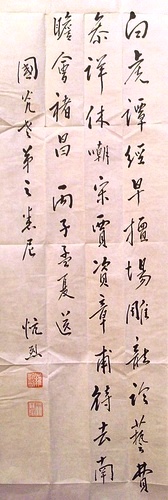 白虎譚經早擅場雕龍論藝費
參詳休嘲宋賈資章甫待去南
瞻會褚昌 丙子孟夏送
國光老弟之悉尼 忼烈